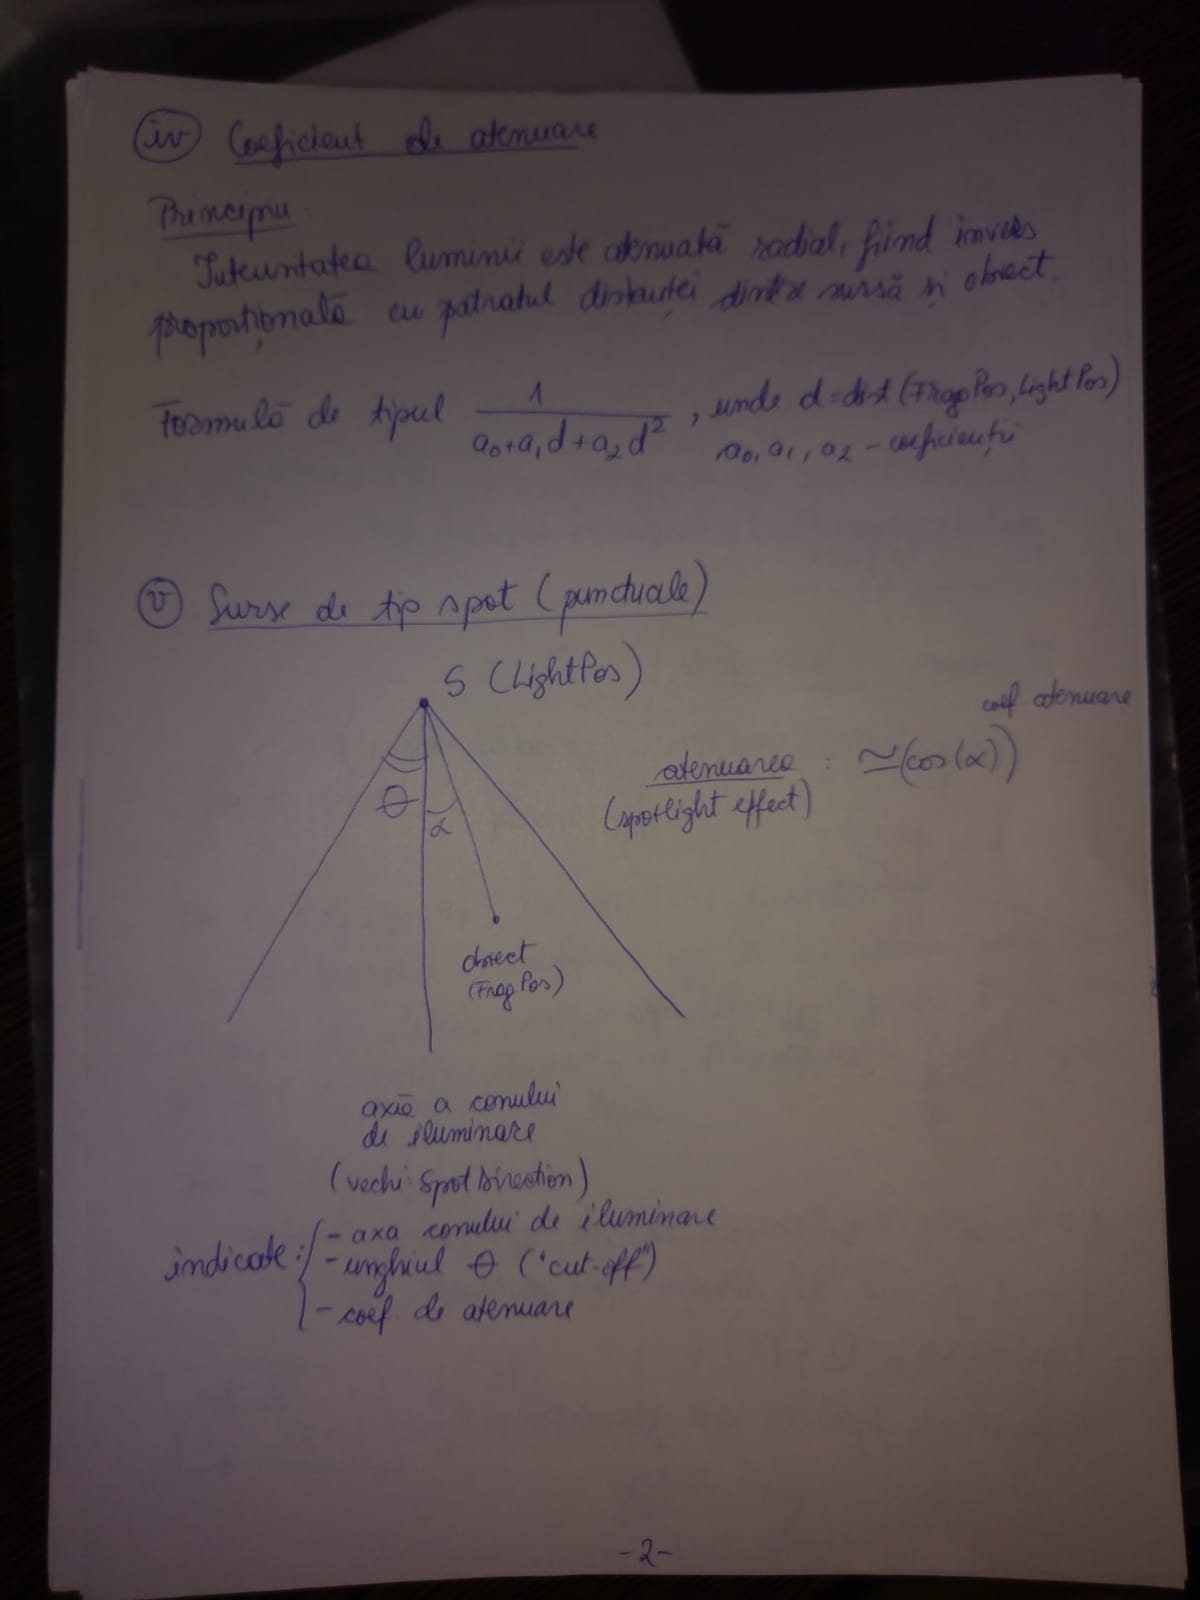 iv Coeficient de atenuare
Principiu:
Intensitatea luminii este atenuată radial, fiind invers
proporțională cu pătratul distanței dintre sursă și obiect.
Formulă de tipul 1/(a₀+a₁d+a₂d²), unde d=dist(FragPos, LightPos)
a₀, a₁, a₂ - coeficienții
v Surse de tip spot (punctuale)
S (LightPos)
coef atenuare
atenuarea : ≃(cos(α))
(spotlight effect)
θ
α
obiect
(FragPos)
axă a conului
de iluminare
(vechi: SpotDirection)
indicate: - axa conului de iluminare
- unghiul θ ("cut-off")
- coef. de atenuare
-2-